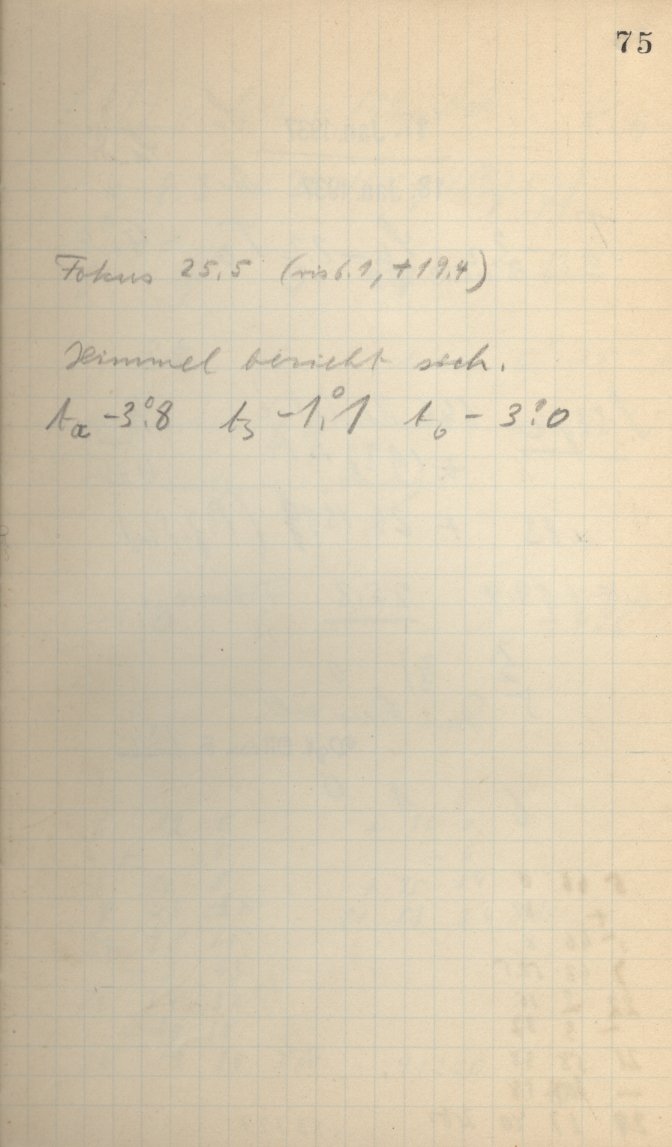 75
Fokus 25,5 (vis 6.1, +19.4)
Himmel bezieht sich.
ta -3°.8 t3 -1°.1 t6 - 3°.0